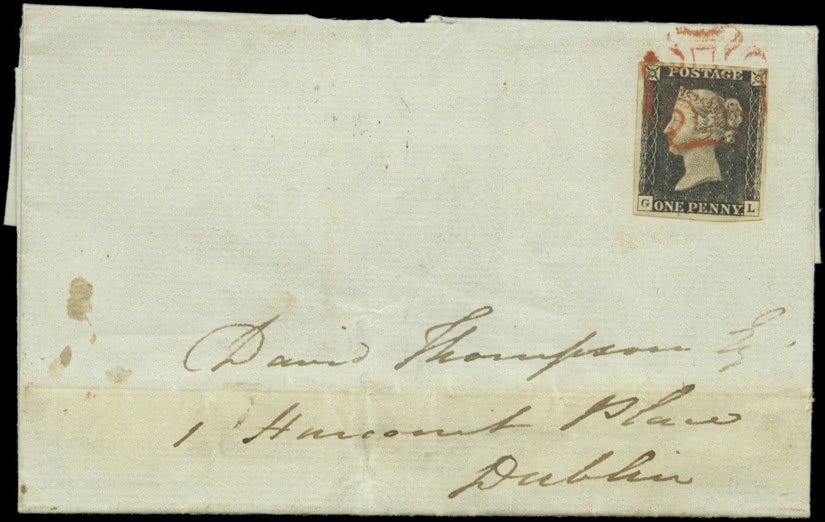 POSTAGE
ONE PENNY
G L
David Thompson Esq
1 Harcourt Place
Dublin